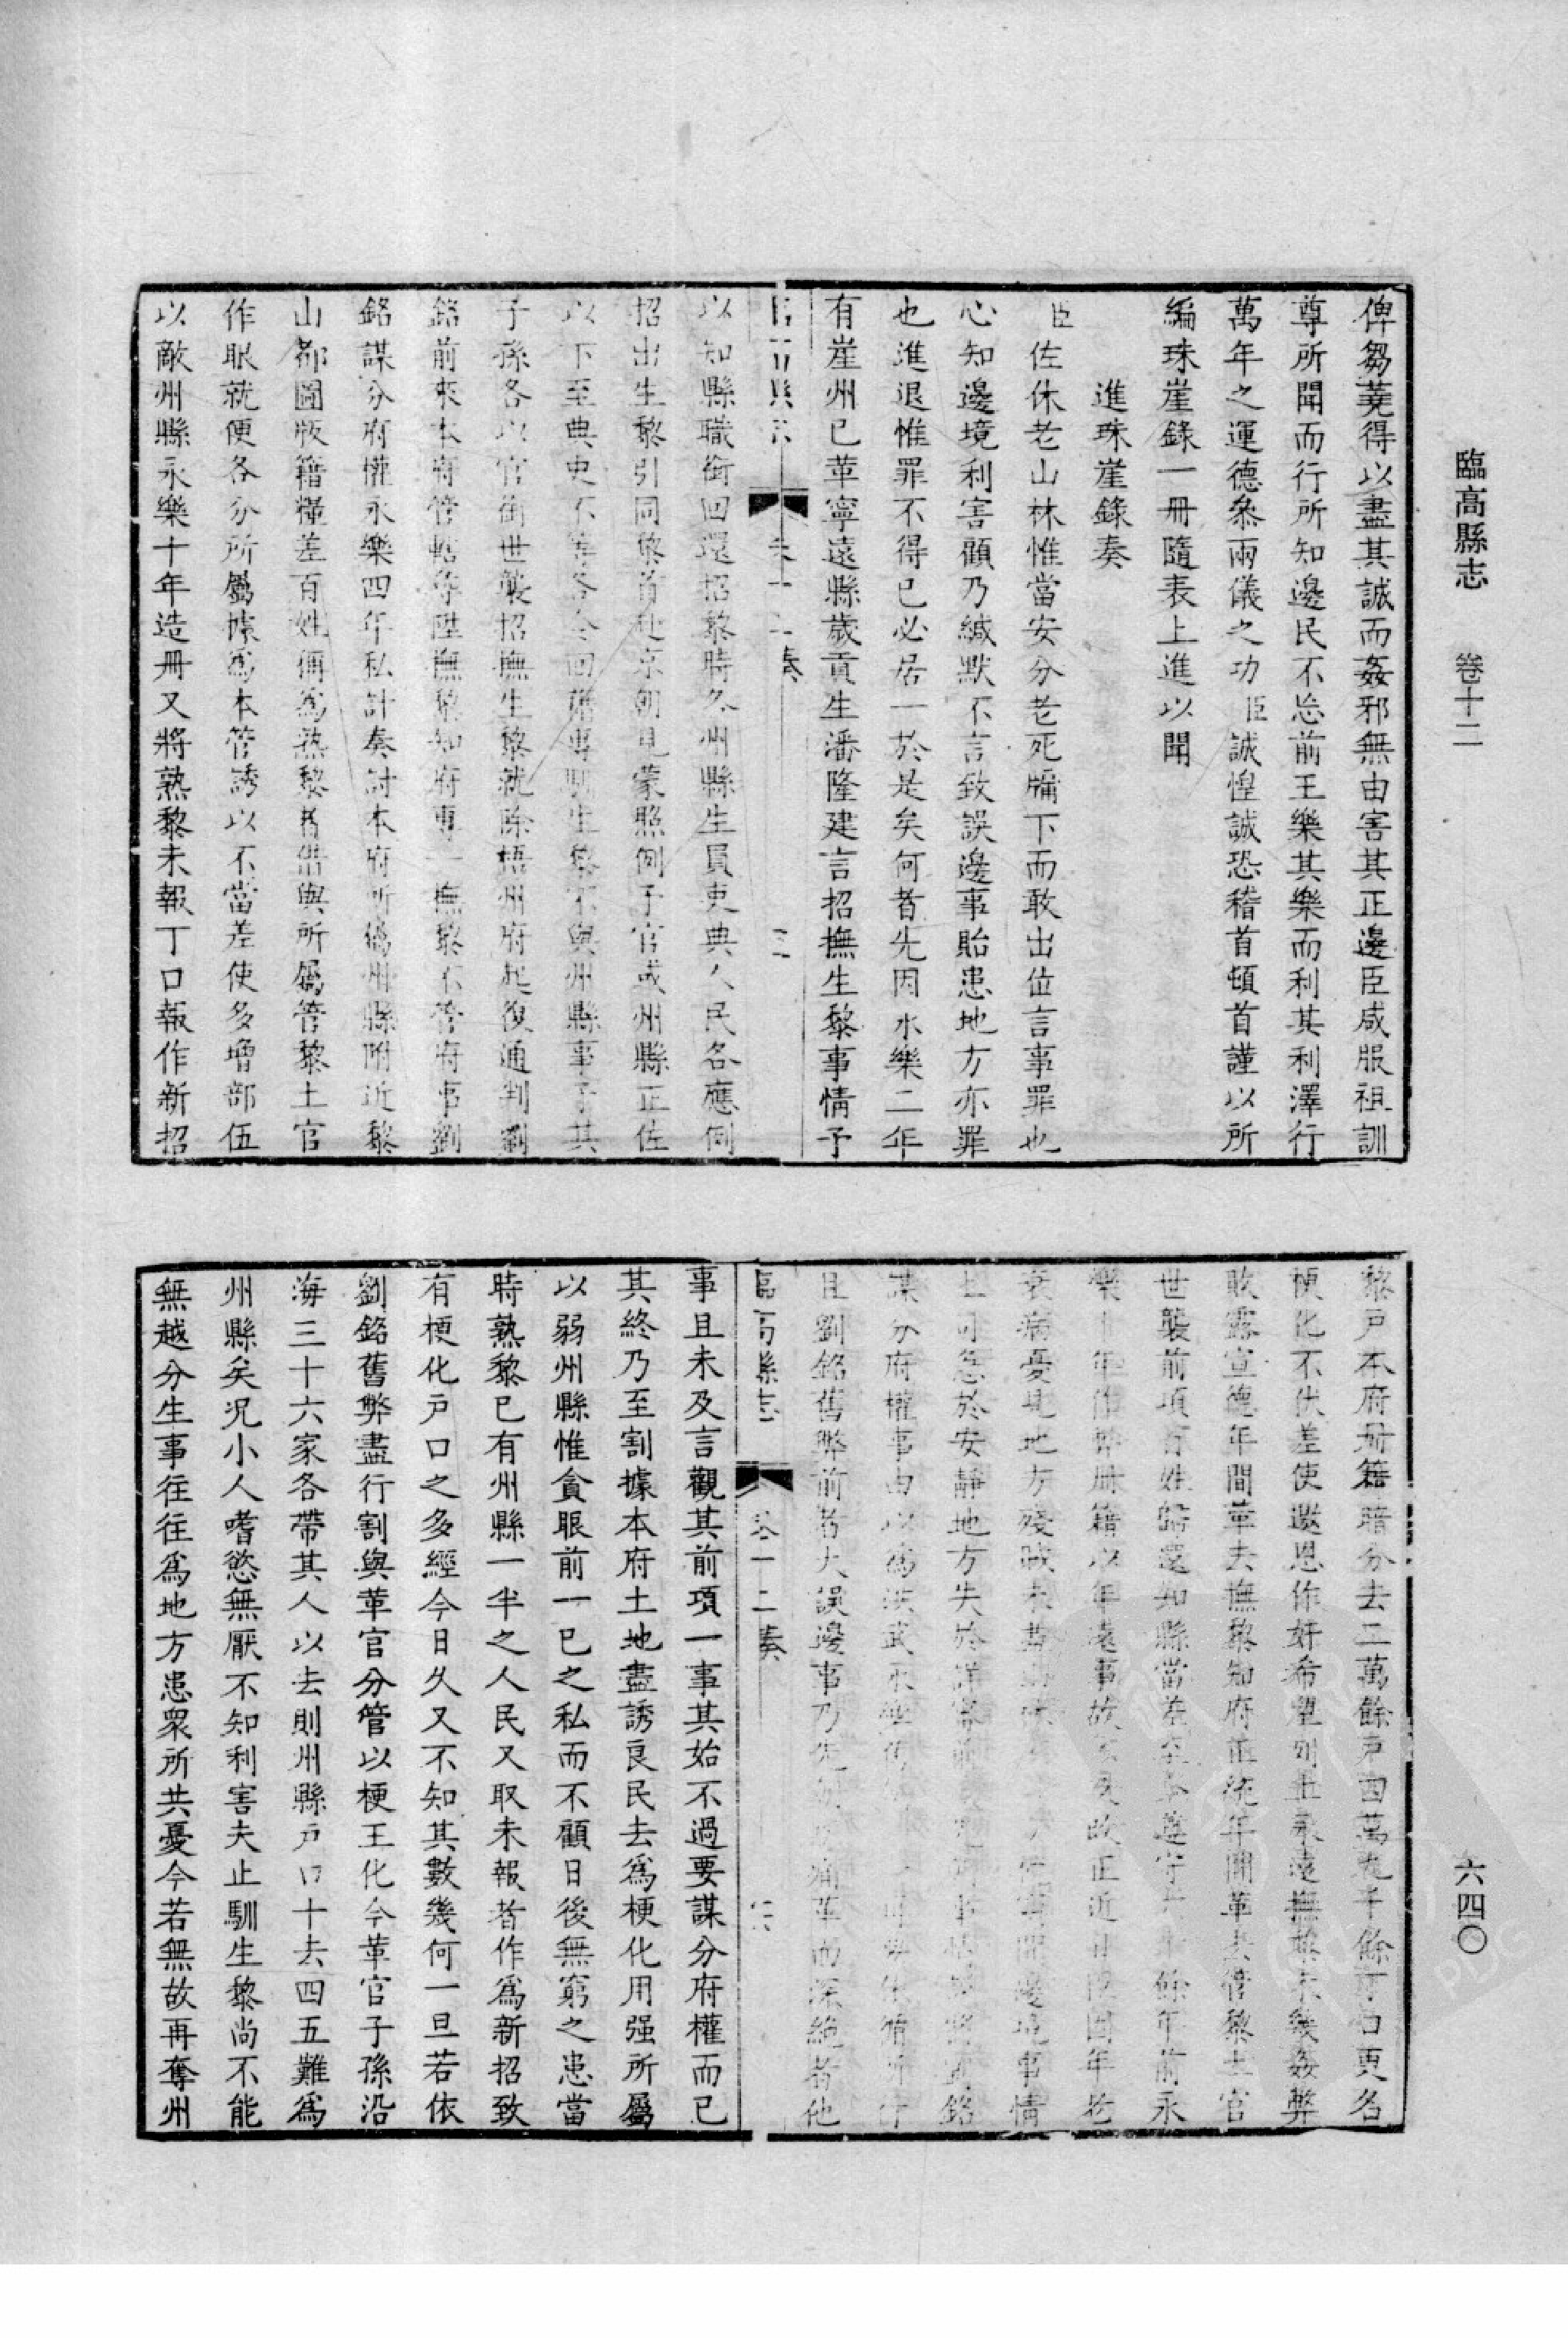 臨高縣志　卷十二
六四〇
俾芻蕘得以盡其誠而姦邪無由害其正邊臣咸服祖訓
尊所聞而行所知邊民不忘前王樂其樂而利其利澤行
萬年之運德叅兩儀之功臣誠惶誠恐稽首頓首謹以所
編珠崖錄一冊隨表上進以聞
進珠崖錄奏
臣佐休老山林惟當安分老死牖下而敢出位言事罪也
心知邊境利害顧乃緘默不言致誤邊事貽患地方亦罪
也進退惟罪不得已必居一於是矣何者先因永樂二年
有崖州已革寧遠縣歲貢生潘隆建言招撫生黎事情予
以知縣職銜回還招黎時各州縣生員吏典人民各應例
招出生黎引同黎首赴京朝見蒙照例予官或州縣正佐
以下至典史不等各令回籍專馴生黎不與州縣事子其
子孫各以官銜世襲招撫生黎就除梧州府起復通判劉
銘前來本府管轄等陞撫黎知府專一撫黎不管府事劉
銘謀分府權永樂四年私計奏討本府所屬州縣附近黎
山都圖版籍糧差百姓稱為熟黎者借與所屬管黎土官
作眼就便各分所屬據為本管誘以不當差使多增部伍
以敵州縣永樂十年造冊又將熟黎未報丁口報作新招
黎戶本府冊籍暗分去二萬餘戶四萬九千餘丁口更名
梗化不伏差使邀恩作奸希望列土永遠撫黎未幾姦弊
敗露宣德年間革去撫黎知府正統年間革去管黎土官
世襲前項百姓歸還知縣當差至今遵守六十餘年前永
樂十年作弊冊籍以年遠事故 改正近 因年老
衰病憂見地方殘 未 邊境事情
上司急於安靜地方失於詳察 銘
謀分府權事由以為洪武
且劉銘舊弊前者大誤邊事乃先 痛革而深絕者他
臨高縣志　卷十二奏
事且未及言觀其前項一事其始不過要謀分府權而已
其終乃至割據本府土地盡誘良民去為梗化用强所屬
以弱州縣惟貪眼前一已之私而不顧日後無窮之患當
時熟黎已有州縣一半之人民又取未報者作為新招致
有梗化戶口之多經今日久又不知其數幾何一旦若依
劉銘舊弊盡行割與革官分管以梗王化今革官子孫沿
海三十六家各帶其人以去則州縣戶口十去四五難為
州縣矣况小人嗜慾無厭不知利害夫止馴生黎尚不能
無越分生事往往為地方患衆所共憂今若無故再奪州